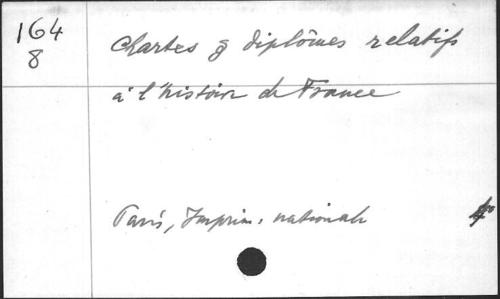 164
8
Chartes & diplômes relatifs
à l'histoire de France
Paris, Imprim. nationale
4°